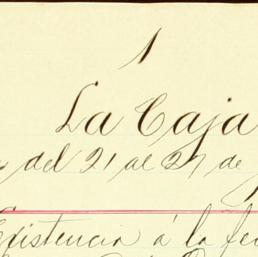 1
La Caja
del 21 al 27 de
Existencia á la